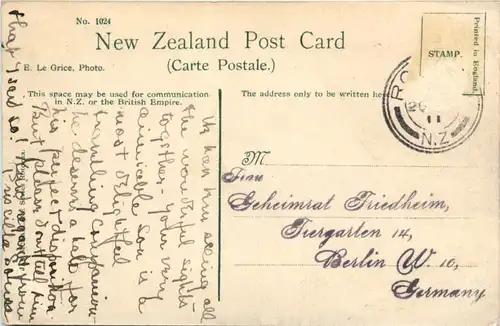 No. 1024
New Zealand Post Card
(Carte Postale.)
E. Le Grice, Photo.
STAMP.
Printed in England
This space may be used for communication
in N.Z. or the British Empire.
The address only to be written he
RO
11
N.Z.
M
Frau
Geheimrat Friedheim,
Tiergarten 14,
Berlin W. 10,
Germany
seeing all
the wonderful sights
together. Your very
amiable Son is a
most delightful
travelling companion
he deserves a halo for
his perfect disposition
But please don't tell him
that I said so!